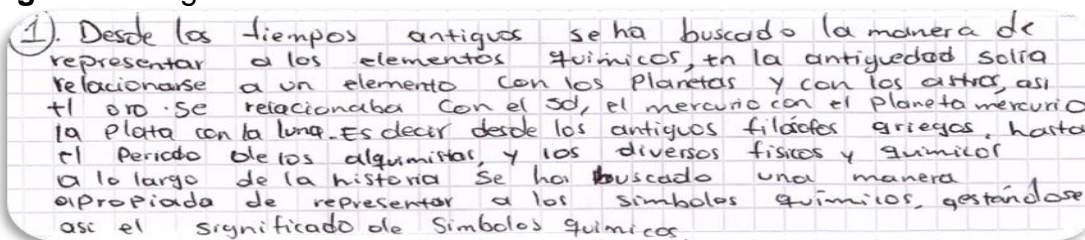 1). Desde los tiempos antiguos se ha buscado la manera de
representar a los elementos químicos, En la antiguedad solia
relacionarse a un elemento con los Planetas y con los astros, asi
El oro se relacionaba con el sol, el mercurio con el planeta mercurio
la plata con la luna. Es decir desde los antiguos filósofos griegos, hasta
el Periodo de los alquimistas, y los diversos fisicos y quimicos
a lo largo de la historia se ha buscado una manera
apropiada de representar a los simbolos químicos, gestándose
asi el significado de simbolos quimicos